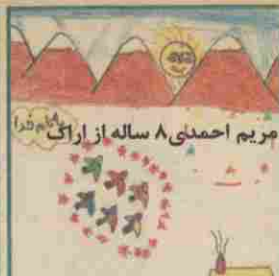 بنام خدا
مریم احمدی ۸ ساله از اراک